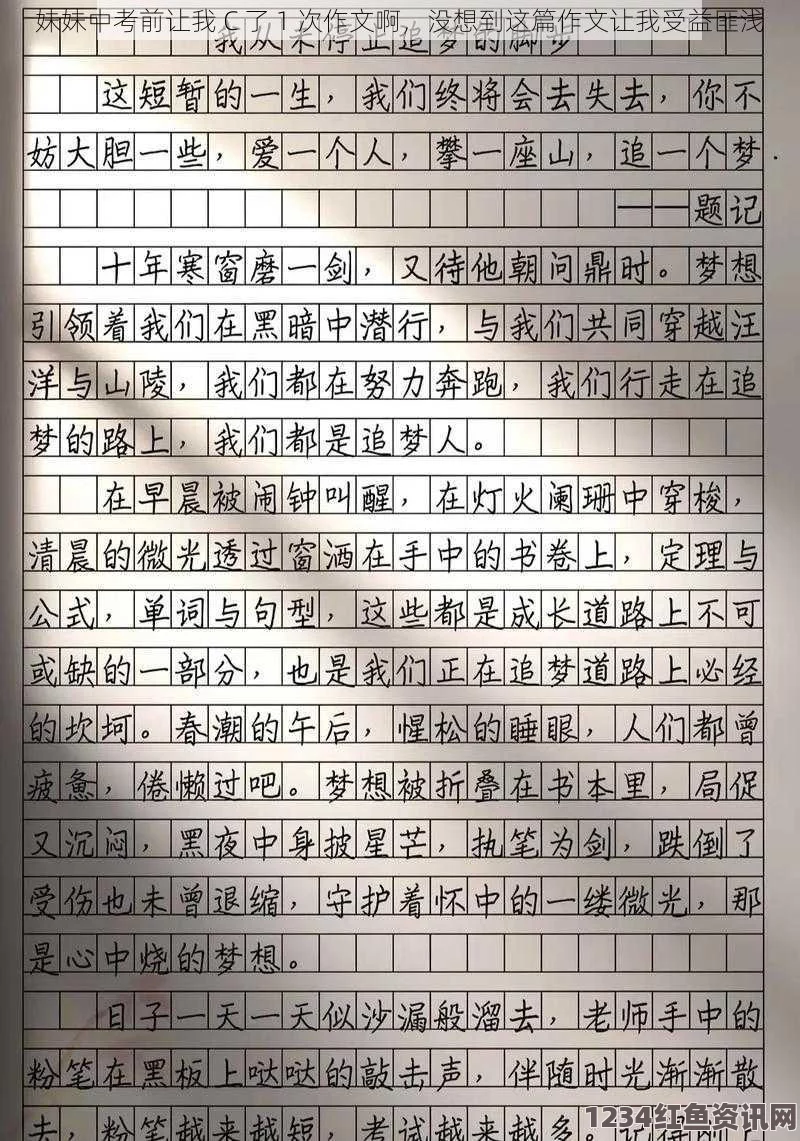 妹妹中考前让我 C 了 1 次作文啊，没想到这篇作文让我受益匪浅
我从未停止追梦的脚步
这短暂的一生，我们终将会去失去，你不
妨大胆一些，爱一个人，攀一座山，追一个梦.
——题记
十年寒窗磨一剑，又待他朝问鼎时。梦想
引领着我们在黑暗中潜行，与我们共同穿越汪
洋与山陵，我们都在努力奔跑，我们行走在追
梦的路上，我们都是追梦人。
在早晨被闹钟叫醒，在灯火阑珊中穿梭，
清晨的微光透过窗洒在手中的书卷上，定理与
公式，单词与句型，这些都是成长道路上不可
或缺的一部分，也是我们正在追梦道路上必经
的坎坷。春潮的午后，惺松的睡眼，人们都曾
疲惫，倦懒过吧。梦想被折叠在书本里，局促
又沉闷，黑夜中身披星芒，执笔为剑，跌倒了
受伤也未曾退缩，守护着怀中的一缕微光，那
是心中烧的梦想。
日子一天一天似沙漏般溜去，老师手中的
粉笔在黑板上哒哒的敲击声，伴随时光渐渐散
去，粉笔越来越短，考试越来越多。
1234红鱼资讯网